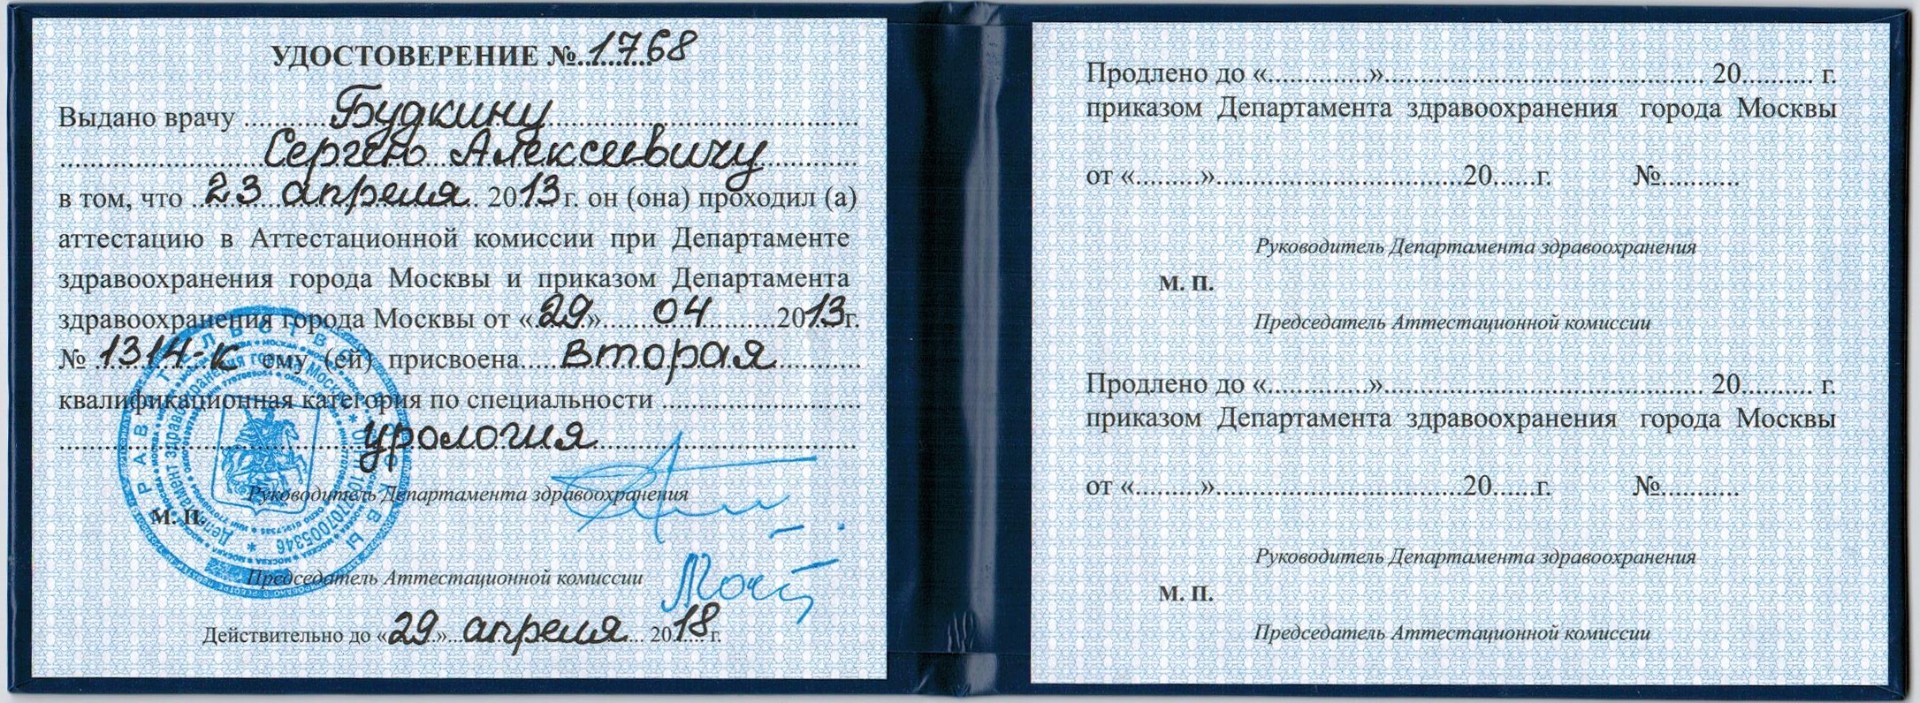 УДОСТОВЕРЕНИЕ №.1768
Выдано врачу Будкину
Сергею Алексеевичу
в том, что 23 апреля 2013 г. он (она) проходил (а)
аттестацию в Аттестационной комиссии при Департаменте
здравоохранения города Москвы и приказом Департамента
здравоохранения города Москвы от «29» 04 2013г.
№ 1314-к ему (ей) присвоена вторая
квалификационная категория по специальности
урология
Руководитель Департамента здравоохранения
М. П.
Председатель Аттестационной комиссии
Действительно до «29» апреля 2018 г.
Продлено до «..............»............................................ 20.......... г.
приказом Департамента здравоохранения города Москвы
от «.........»..................................20......г. №...........
Руководитель Департамента здравоохранения
М. П.
Председатель Аттестационной комиссии
Продлено до «..............»............................................ 20.......... г.
приказом Департамента здравоохранения города Москвы
от «.........»..................................20......г. №...........
Руководитель Департамента здравоохранения
М. П.
Председатель Аттестационной комиссии